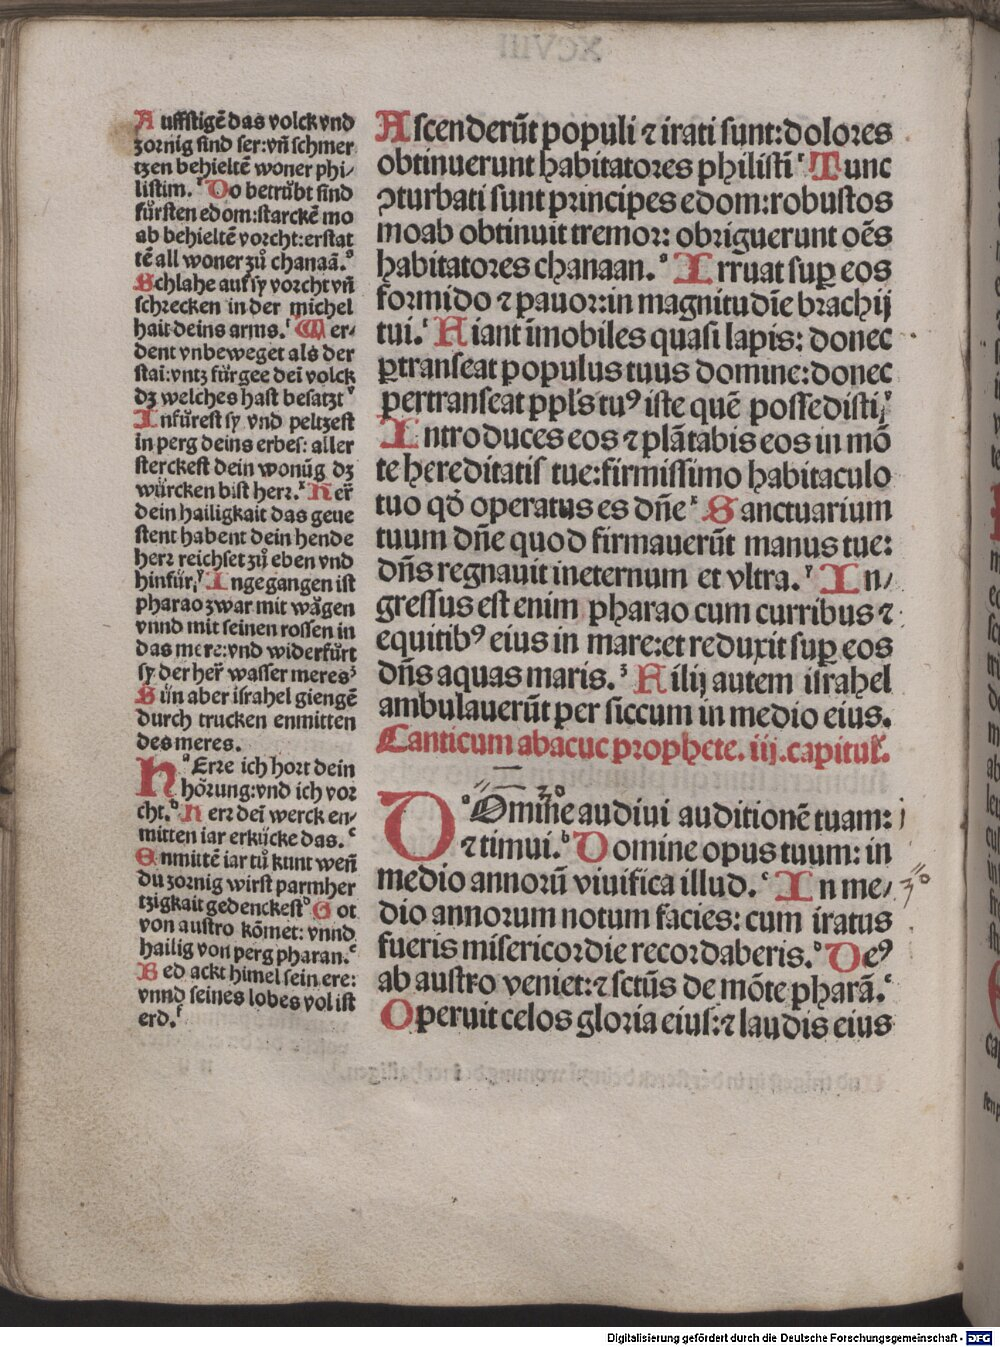 Auffstigẽ das volck vnd
zornig sind ser: vñ schmer
tzen behieltẽ woner phi/
listim. Do betruͤbt sind
fuͤrsten edom: starckẽ mo
ab behieltẽ vorcht: erstat
tẽ all woner zuͦ chanaã.
Schlahe auf sy vorcht vñ
schrecken in der michel
hait deins arms. Wer-
dent vnbeweget als der
stai: vntz fuͤrgee dei volck
dz welches hast besatzt
Infuͤrest sy vnd peltzest
in perg deins erbes: aller
sterckest dein wonũg dz
wuͤrcken bist herꝛ. Heꝛ̃
dein hailigkait das geue
stent habent dein hende
herꝛ reichset zuͦ eben vnd
hinfuͤr. Ingegangen ist
pharao zwar mit waͤgen
vnnd mit seinen rossen in
das mere: vnd widerfuͤrt
sy der heꝛ̃ wasser meres
Sün aber israhel giengẽ
durch trucken enmitten
des meres.
HErre ich hort dein
hoͤrung: vnd ich vor
cht. Herꝛ dei werck en-
mitten iar erkücke das.
Enmittẽ iar tuͦ kunt wen̄
du zornig wirst parmher
tzigkait gedenckest Got
von austro koͤmet: vnnd
hailig von perg pharan.
Bedackt himel sein ere:
vnnd seines lobes vol ist
erd.
Ascenderũt populi ⁊ irati sunt: dolores
obtinuerunt habitatores philisti Tunc
ꝯturbati sunt principes edom: robustos
moab obtinuit tremor: obriguerunt oẽs
habitatores chanaan. Irruat suꝑ eos
formido ⁊ pauor: in magnitudĩe brachij
tui. Fiant ĩmobiles quasi lapis: donec
ꝑtranseat populus tuus domine: donec
pertranseat ppl's tuꝰ iste quẽ possedisti
Introduces eos ⁊ plãtabis eos in mõ
te hereditatis tue: firmissimo habitaculo
tuo qđ operatus es dñe Sanctuarium
tuum dñe quod firmauerũt manus tue:
dñs regnauit ineternum et vltra. In/
gressus est enim pharao cum curribus ⁊
equitibꝰ eius in mare: et reduxit suꝑ eos
dñs aquas maris. Filij autem israhel
ambulauerũt per siccum in medio eius.
Canticum abacuc prophete. iij. capitul'.
DOmine audiui auditionẽ tuam:
⁊ timui. Domine opus tuum: in
medio annorũ viuifica illud. In me/
dio annorum notum facies: cum iratus
fueris misericordie recordaberis. Deꝰ
ab austro veniet: ⁊ sctũs de mõte pharã.
Operuit celos gloria eius: ⁊ laudis eius
Digitalisierung gefördert durch die Deutsche Forschungsgemeinschaft - DFG